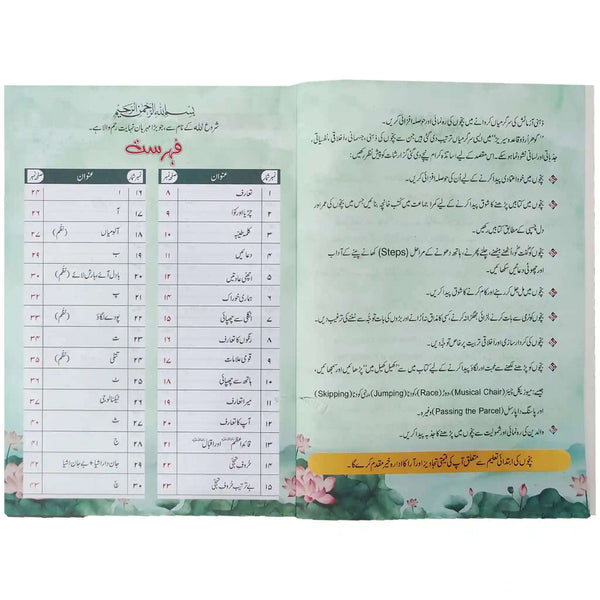 بسم اللہ الرحمٰن الرحیم
شروع اللہ کے نام سے، جو بڑا مہربان نہایت رحم والا ہے۔
فہرست
نمبر شمار عنوان صفحہ نمبر
۱ تعارف ۸
۲ چڑیا اور کوّا ۹
۳ کلمہ طیبہ ۱۰
۴ دعائیں ۱۱
۵ اچھی عادتیں ۱۲
۶ ہماری خوراک ۱۴
۷ انگلی سے چھپائی ۱۵
۸ رنگوں کا تعارف ۱۶
۹ قومی علامات ۱۷
۱۰ ہاتھ سے چھپائی ۱۸
۱۱ میرا تعارف ۱۹
۱۲ آپ کا تعارف ۲۰
۱۳ قائداعظم اور اقبال ۲۱
۱۴ حروفِ تہجی ۲۲
۱۵ بے ترتیب حروفِ تہجی ۲۳
نمبر شمار عنوان صفحہ نمبر
۱۶ ا ۲۴
۱۷ آ ۲۶
۱۸ آلو میاں (نظم) ۲۷
۱۹ ب ۲۹
۲۰ بادل آئے بارش لائے (نظم) ۳۰
۲۱ پ ۳۲
۲۲ پودے لگاؤ (نظم) ۳۳
۲۳ ت ۳۴
۲۴ تتلی (نظم) ۳۵
۲۵ ٹ ۳۶
۲۶ ٹیکنالوجی ۳۷
۲۷ ث ۴۰
۲۸ ج ۴۱
۲۹ جان دار اشیا + بے جان اشیا ۴۲
۳۰ چ ۴۳
ذہنی آزمائش کی سرگرمیاں کروانے میں بچوں کی رہنمائی اور حوصلہ افزائی کریں۔
"گوہر اُردو قاعدہ سیریز" میں ایسی سرگرمیاں ترتیب دی گئی ہیں جن سے بچوں کی ذہنی، جسمانی، اخلاقی، نفسیاتی،
جذباتی اور لسانی نشوونما ہو سکے۔ اس مقصد کے لیے اساتذہ کرام نیچے دی گئی گزارشات کو پیشِ نظر رکھیں۔
بچوں میں خود اعتمادی پیدا کرنے کے لیے اُن کی حوصلہ افزائی کریں۔
بچوں میں کتابیں پڑھنے کا شوق پیدا کرنے کے لیے کمرا جماعت میں کتب خانچہ بنائیں جس میں بچوں کی عمر اور
دل چسپی کے مطابق کتابیں رکھیں۔
بچوں کو گفت گو، اُٹھنے بیٹھنے، چلنے پھرنے، ہاتھ دھونے کے مراحل (Steps) کھانے پینے کے آداب
اور چھوٹی دعائیں سکھائیں۔
بچوں میں مل جل کر رہنے اور کام کرنے کا شوق پیدا کریں۔
بچوں کو نرمی سے بات کرنے، لڑائی جھگڑا نہ کرنے، کسی کا مذاق نہ اُڑانے اور بڑوں کی بات توجہ سے سننے کی ترغیب دیں۔
بچوں کی کردار سازی اور اخلاقی تربیت پر خاص توجہ دیں۔
بچوں کو پڑھنے لکھنے سے محبت اور لگاؤ پیدا کرنے کے لیے کتاب میں سے "کھیل کھیل میں" پڑھائیں اور سمجھائیں،
جیسے: میوزیکل چیئر (Musical Chair)، دوڑ (Race)، کودنا (Jumping)، رسی کودنا (Skipping)
اور پاسنگ دا پارسل (Passing the Parcel) وغیرہ۔
والدین کی رہنمائی اور شمولیت سے بچوں میں پڑھنے کا جذبہ پیدا کریں۔
بچوں کی ابتدائی تعلیم سے متعلق آپ کی قیمتی تجاویز اور آرا کا ادارہ خیر مقدم کرے گا۔